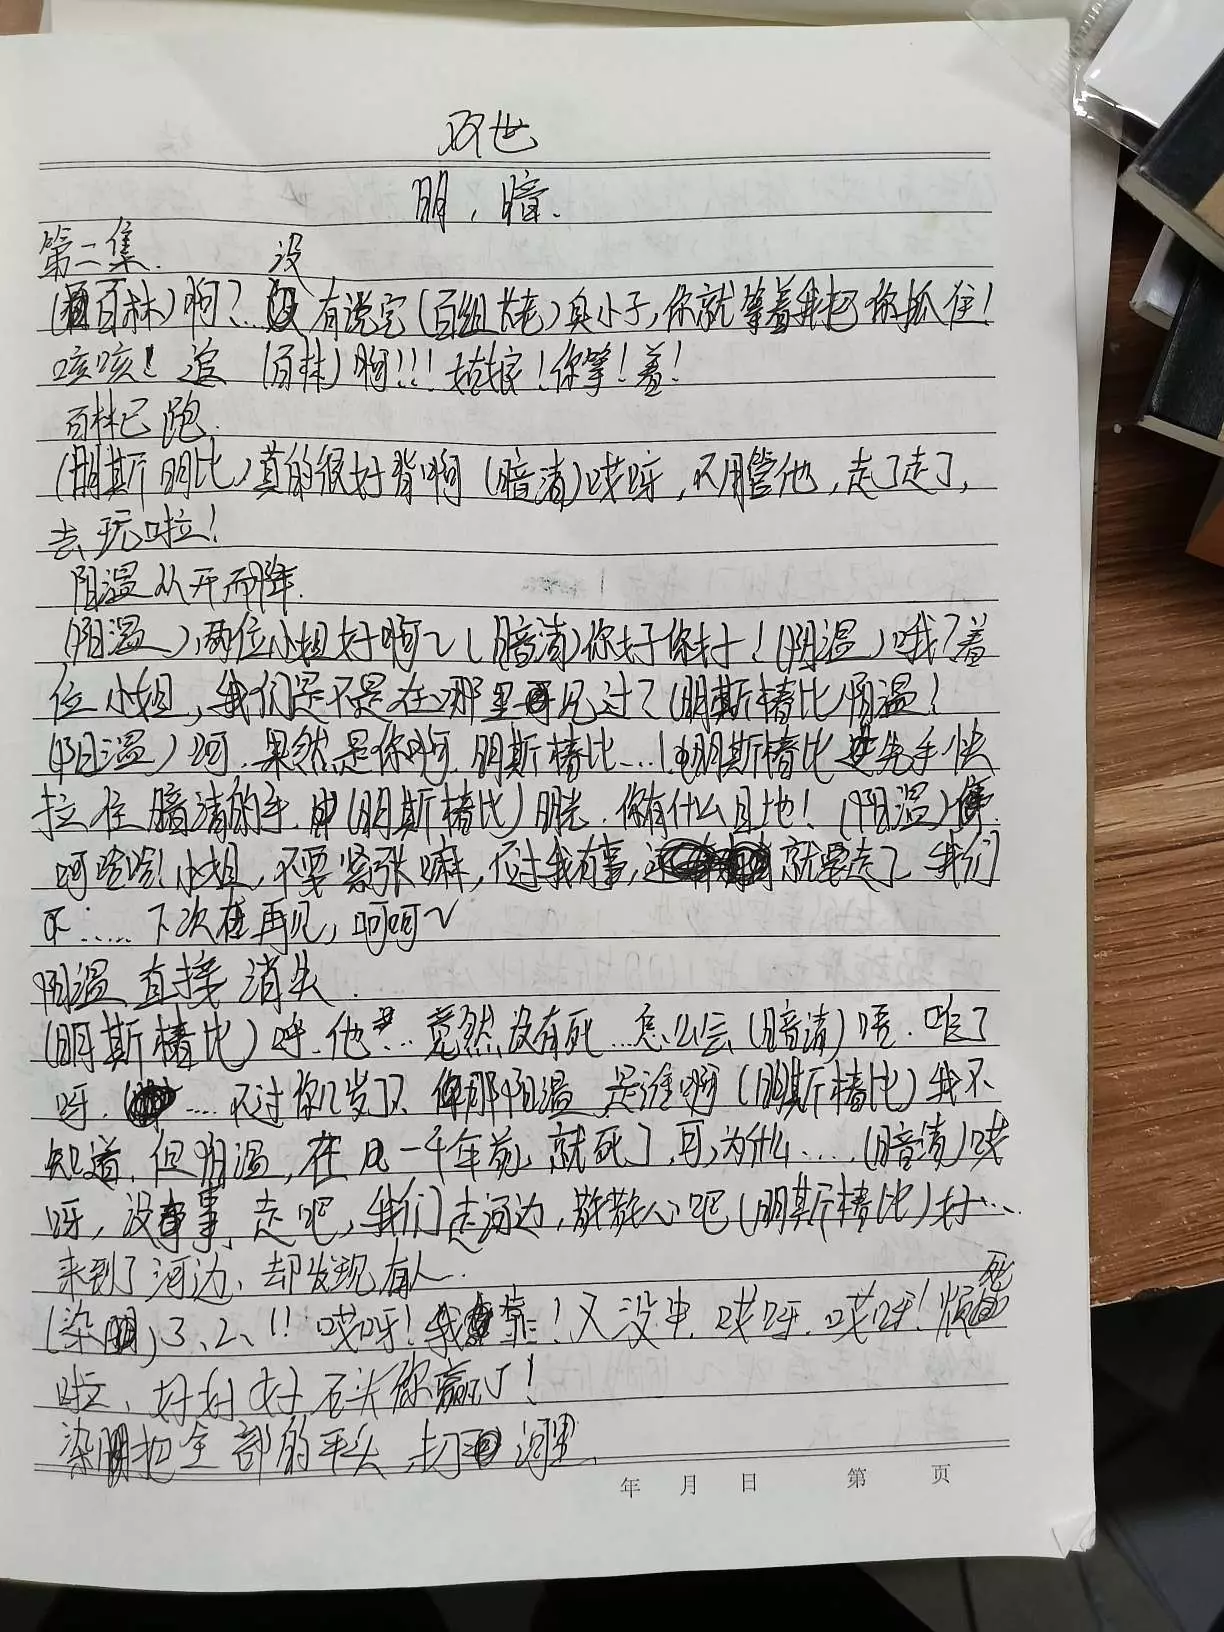 双世
明,暗.
第二集. 没
(百林)啊?...有说完(百组老)臭小子,你就等着我把你抓住!
咳咳!追 (百林)啊!!!救救!你等!着!
百林已跑.
(明斯明比)真的很好背啊(暗清)哎呀,不用管他,走了走了,
去玩啦!
阴温从天而降.
(阴温)两位小姐好啊~(暗清)你好你好!(阴温)哦?着
位小姐,我们是不是在哪里见过?(明斯椿比)阴温!
(阴温)呵.果然是你啊.明斯椿比...!明斯椿比先手快
拉住暗清的手.(明斯椿比)明光.你有什么目地!(阴温)
呵哈哈!小姐,不要紧张嘛,不过我有事,就要走了我们
下......下次在再见,呵呵~
阴温直接消失.
(明斯椿比)呼.他...竟然没有死...怎么会(暗清)唔.咋了
呀....不过你几岁了.那阴温是谁啊(明斯椿比)我不
知道.但阴温,在一千年前,就死了,可为什么....(暗清)哎
呀,没事走吧,我们去河边,散散心吧(明斯椿比)好...
来到了河边、却发现有人.
(染明)3、2、1!哎呀!我靠!又没中.哎呀.哎呀!烦死
啦、好好好石头你赢了!
染明把全部的石头,打河里.
年 月 日 第 页